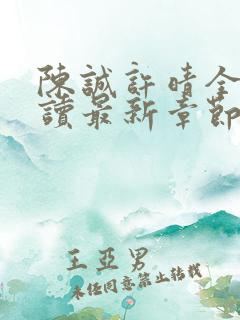 陳誠許晴全
讀最新章節
王亞男
未經同意禁止轉載